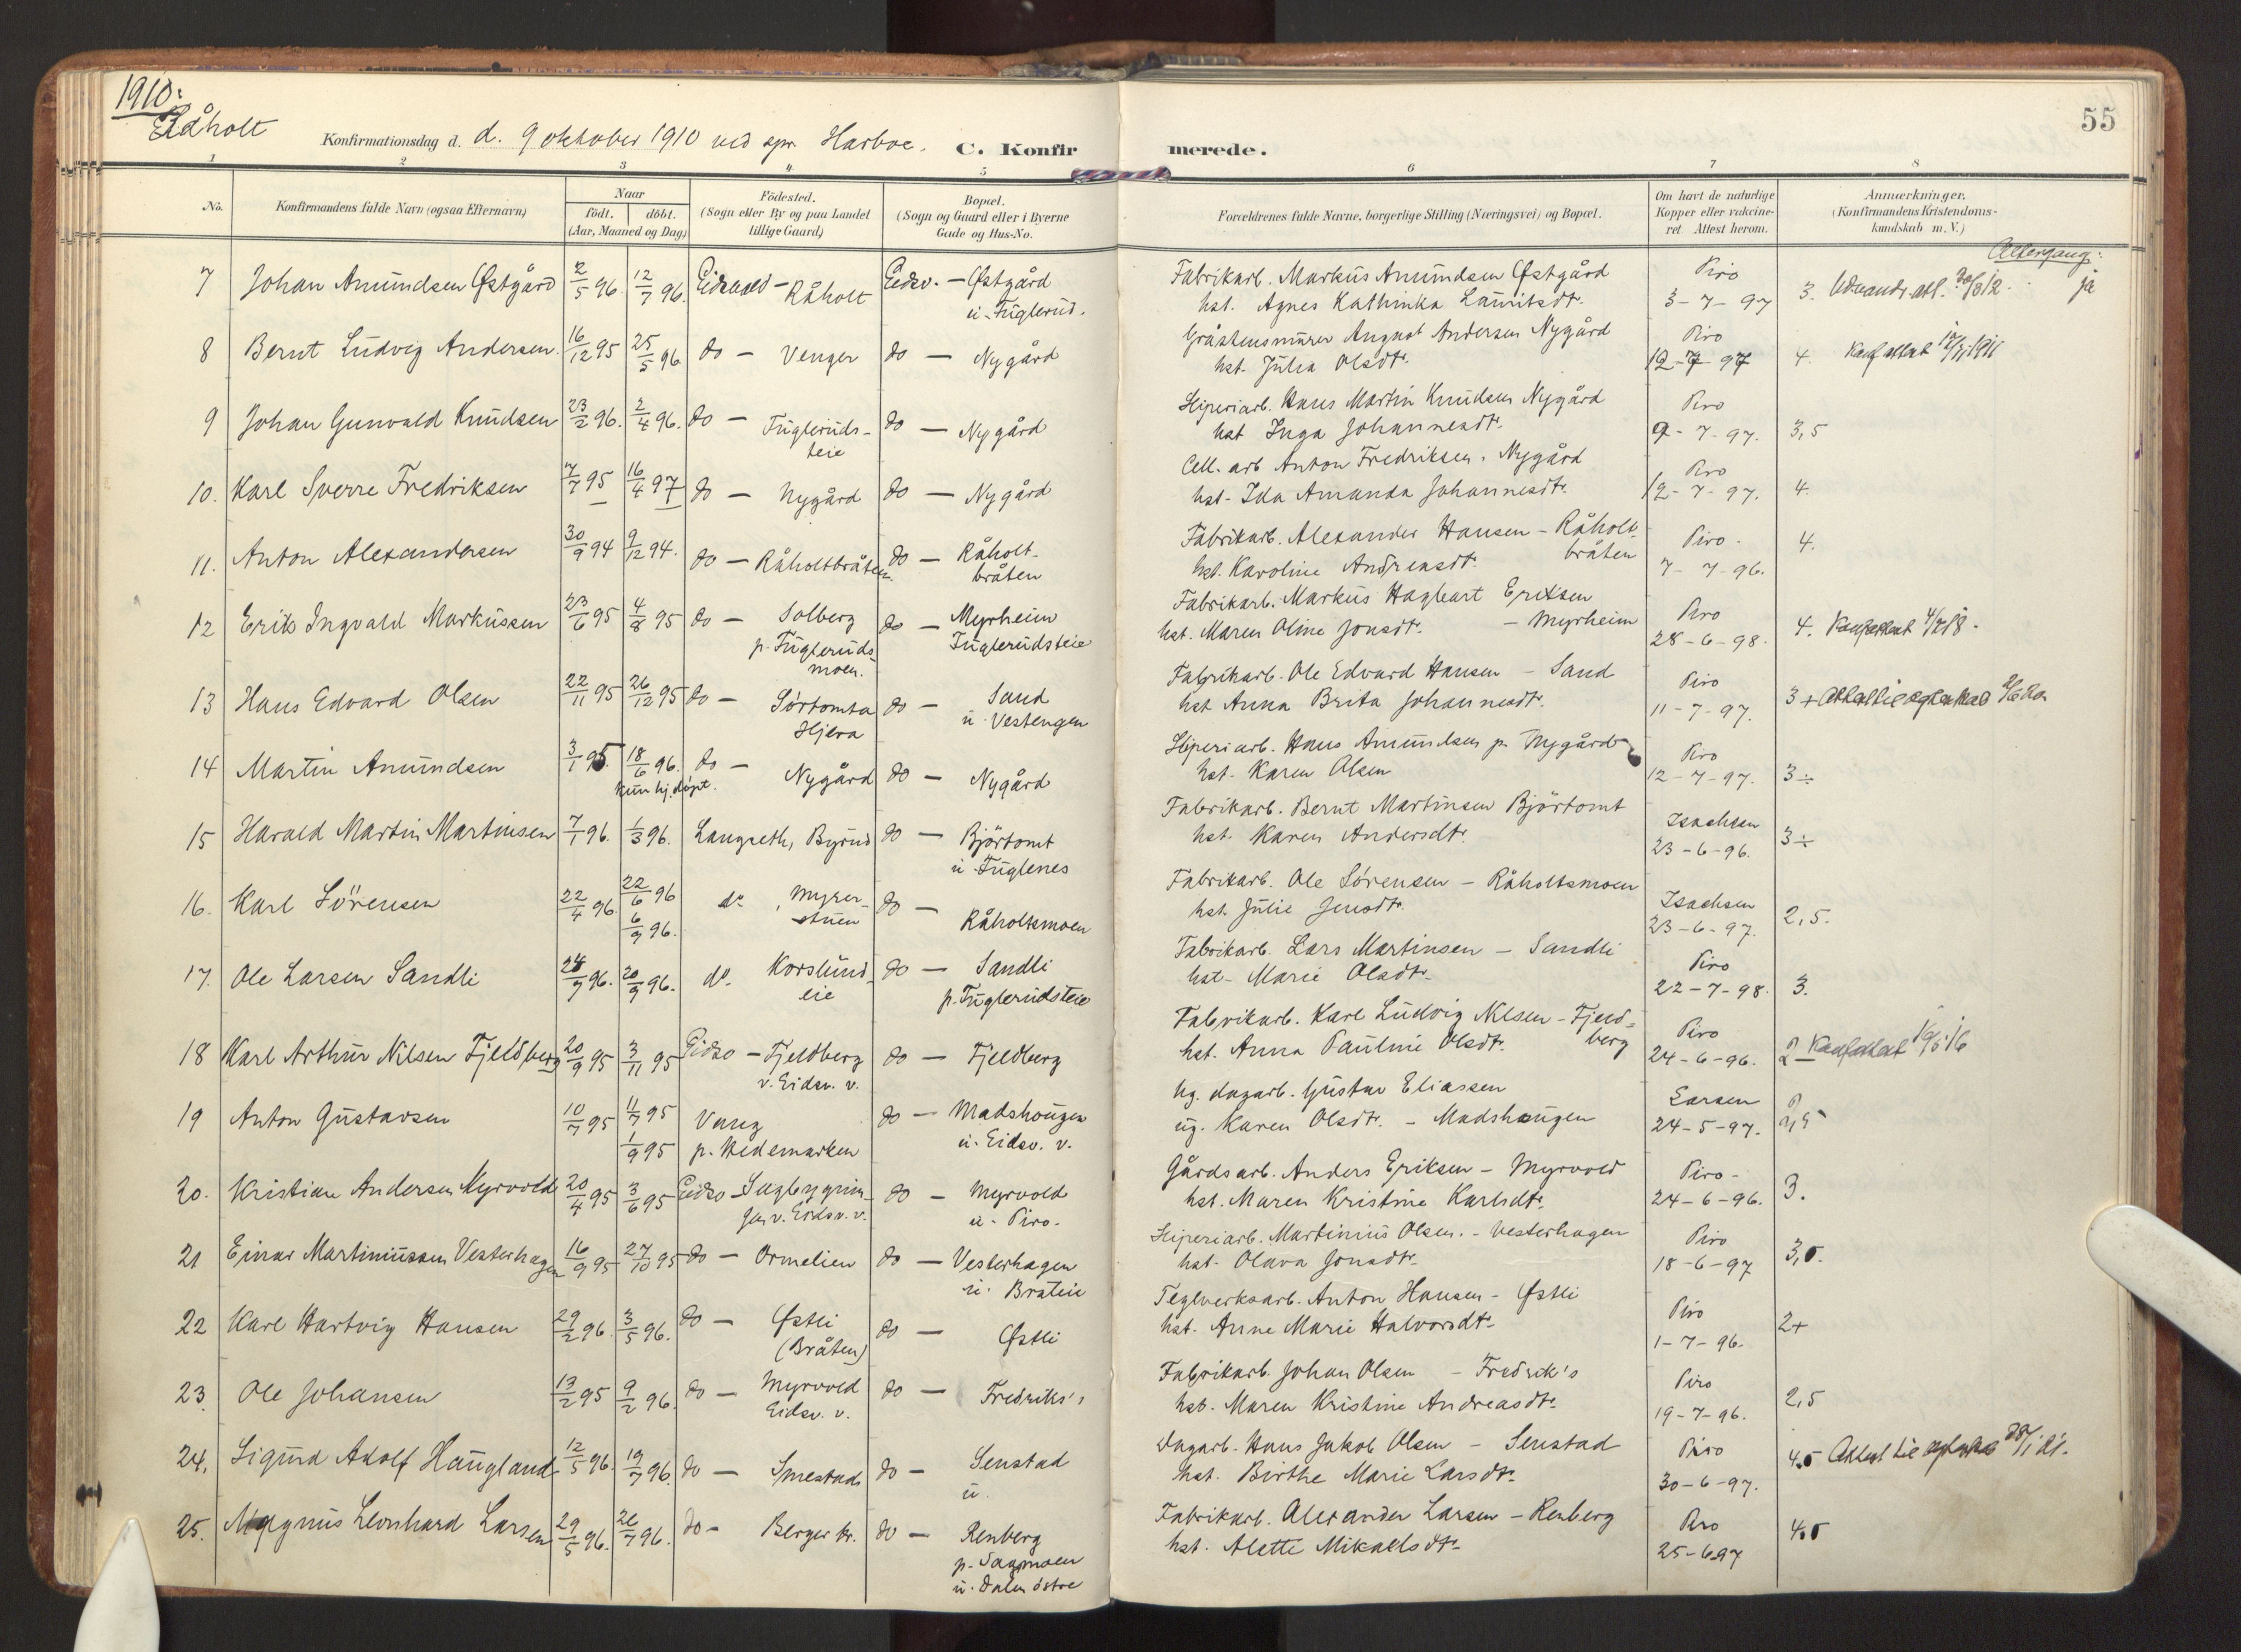 1910:
Råholt
55
Konfirmationsdag d. d. 9 oktober 1910 ved spr. Harboe. C. Konfirmerede.
1 2 3 4 5 6 7 8
No. Konfirmandens fulde Navn (ogsaa Efternavn) Naar födt. döbt. (Aar, Maaned og Dag) Födested. (Sogn eller By og paa Landet tillige Gaard) Bopæl. (Sogn og Gaard eller i Byerne Gade og Hus-No. Forældrenes fulde Navne, borgerlige Stilling (Næringsvei) og Bopæl. Om havt de naturlige Kopper eller vakcineret Attest herom. Anmærkninger. (Konfirmandens Kristendomskundskab m. V.)
Altergang:
7 Johan Amundsen Østgård 2/5 96 12/7 96. Eidsvold – Råholt Eidsv. – Østgård Fabrikarb. Markus Amundsen Østgård Piro 3. Udvandr. att. ja
u. Fuglerud. hst. Agnes Kathinka Lauritsdtr. 3-7-97
8 Bernt Ludvig Andersen. 16/12 95 25/5 96 do – Venger do – Nygård Gråstensmurer August Andersen Nygård Piro 4. Konf attest
hst. Julia Olsdtr. 12-7-97
9 Johan Gunvald Knudsen 23/2 96. 2/4 96. do – Fugleruds- do – Nygård Sliperiarb. Hans Martin Knudsen Nygård Piro
teie hst Inga Johannesdtr. 9-7-97. 3,5
10. Karl Sverre Fredriksen 7/7 95 16/4 97 do – Nygård do – Nygård Cell. arb Anton Fredriksen. Nygård Piro
hst. Ida Amanda Johannesdtr. 12-7-97. 4.
11. Anton Alexandersen 30/9 94 9/12 94. do – Råholtbråten do – Råholt- Fabrikarb. Alexander Hansen – Råholt- Piro. 4.
bråten hst. Karoline Andreasdtr. bråten 7-7-96.
12 Erik Ingvald Markussen 23/6 95 4/8 95 do – Solberg do – Myrheim Fabrikarb. Markus Hagbart Eriksen Piro
p. Fuglerudsmoen. Fuglerudsteie hst. Maren Oline Jonsdtr. – Myrheim 28-6-98. 4. Konfattest
13 Hans Edvard Olsen 22/11 95 26/12 95 do – Sörtomta do – Sand Fabrikarb. Ole Edvard Hansen – Sand Piro
Hjera u. Vestengen hst Anna Brita Johannesdtr. 11-7-97. 3+ Attest til ægteskab
14 Martin Amundsen 3/1 95. 18/6 96. do – Nygård do – Nygård Sliperiarb. Hans Amundsen p. Nygård Piro
kun hj. döpt. hst. Karen Olsen 12-7-97. 3÷
15 Harald Martin Martinsen 7/1 96. 1/3 96. Langseth, Byrud do – Björtomt Fabrikarb. Bernt Martinsen Björtomt Isachsen
u. Fuglenes hst. Karen Andersdtr. 23-6-96. 3÷
16. Karl Sörensen 22/4 96 22/6 96 do, Myrer- do – Råholtsmoen Fabrikarb. Ole Sörensen – Råholtsmoen Isachsen
6/9 96. stuen hst. Julie Jensdtr. 23-6-97. 2,5.
17. Ole Larsen Sandli 24/7 96. 20/9 96. do. Korslund- do – Sandli Fabrikarb. Lars Martinsen – Sandli Piro
eie p. Fuglerudsteie hst. Marie Olsdtr. 22-7-98. 3.
18 Karl Arthur Nilsen Fjeldberg 20/9 95 3/11 95 Eidsv – Fjeldberg do – Fjeldberg Fabrikarb. Karl Ludvig Nilsen – Fjeld- Piro
v. Eidsv. v. hst. Anna Pauline Olsdtr. berg 24-6-96. 2 Konfattest
19 Anton Gustavsen 10/7 95 11/7 95 Vang do – Madshougen Ug. dagarb. Gustav Eliassen Larsen
1/9 95 p. Hedemarken u. Eidsv. v. ug. Karen Olsdtr. – Madshaugen 24-5-97. 2,5
20. Kristian Andersen Myrvold 20/4 95 3/6 95 Eidsv – do – Myrvold Gårdsarb. Anders Eriksen – Myrvold Piro.
v. Eidsv. v. u. Piro. hst. Maren Kristine Karlsdtr. 24-6-96. 3.
21 Einar Martiniussen Vesterhagen 16/9 95 27/10 95 do – Ormelien do – Vesterhagen Sliperiarb. Martinius Olsen. – Vesterhagen Piro
u. Bråteie hst. Olava Jonsdtr. 18-6-97 3,5.
22 Karl Hartvig Hansen 29/2 96. 3/5 96. do – Østli do – Østli Teglverksarb. Anton Hansen – Østli Piro
(Bråten) hst. Anne Marie Halvorsdtr. 1-7-96. 2+
23. Ole Johansen 13/2 95 9/2 96. do – Myrvold do – Fredriks's Fabrikarb. Johan Olsen – Fredrik's Piro
Eidsv. v. hst. Maren Kristine Andreasdtr. 19-7-96. 2,5
24. Sigurd Adolf Haugland 12/5 96. 19/7 96. do – Smestads do – Senstad Dagarb. Hans Jakob Olsen – Senstad Piro
u. hst. Birthe Marie Larsdtr. 30-6-97. 4,5 Attest til
25. Magnus Leonhard Larsen 29/5 96. 26/7 96. do – Berger kr. do – Renberg Fabrikarb. Alexander Larsen – Renberg Piro
p. Sagmoen hst. Alette Mikaelsdtr. 25-6-97 4,5
u. Dalen östre